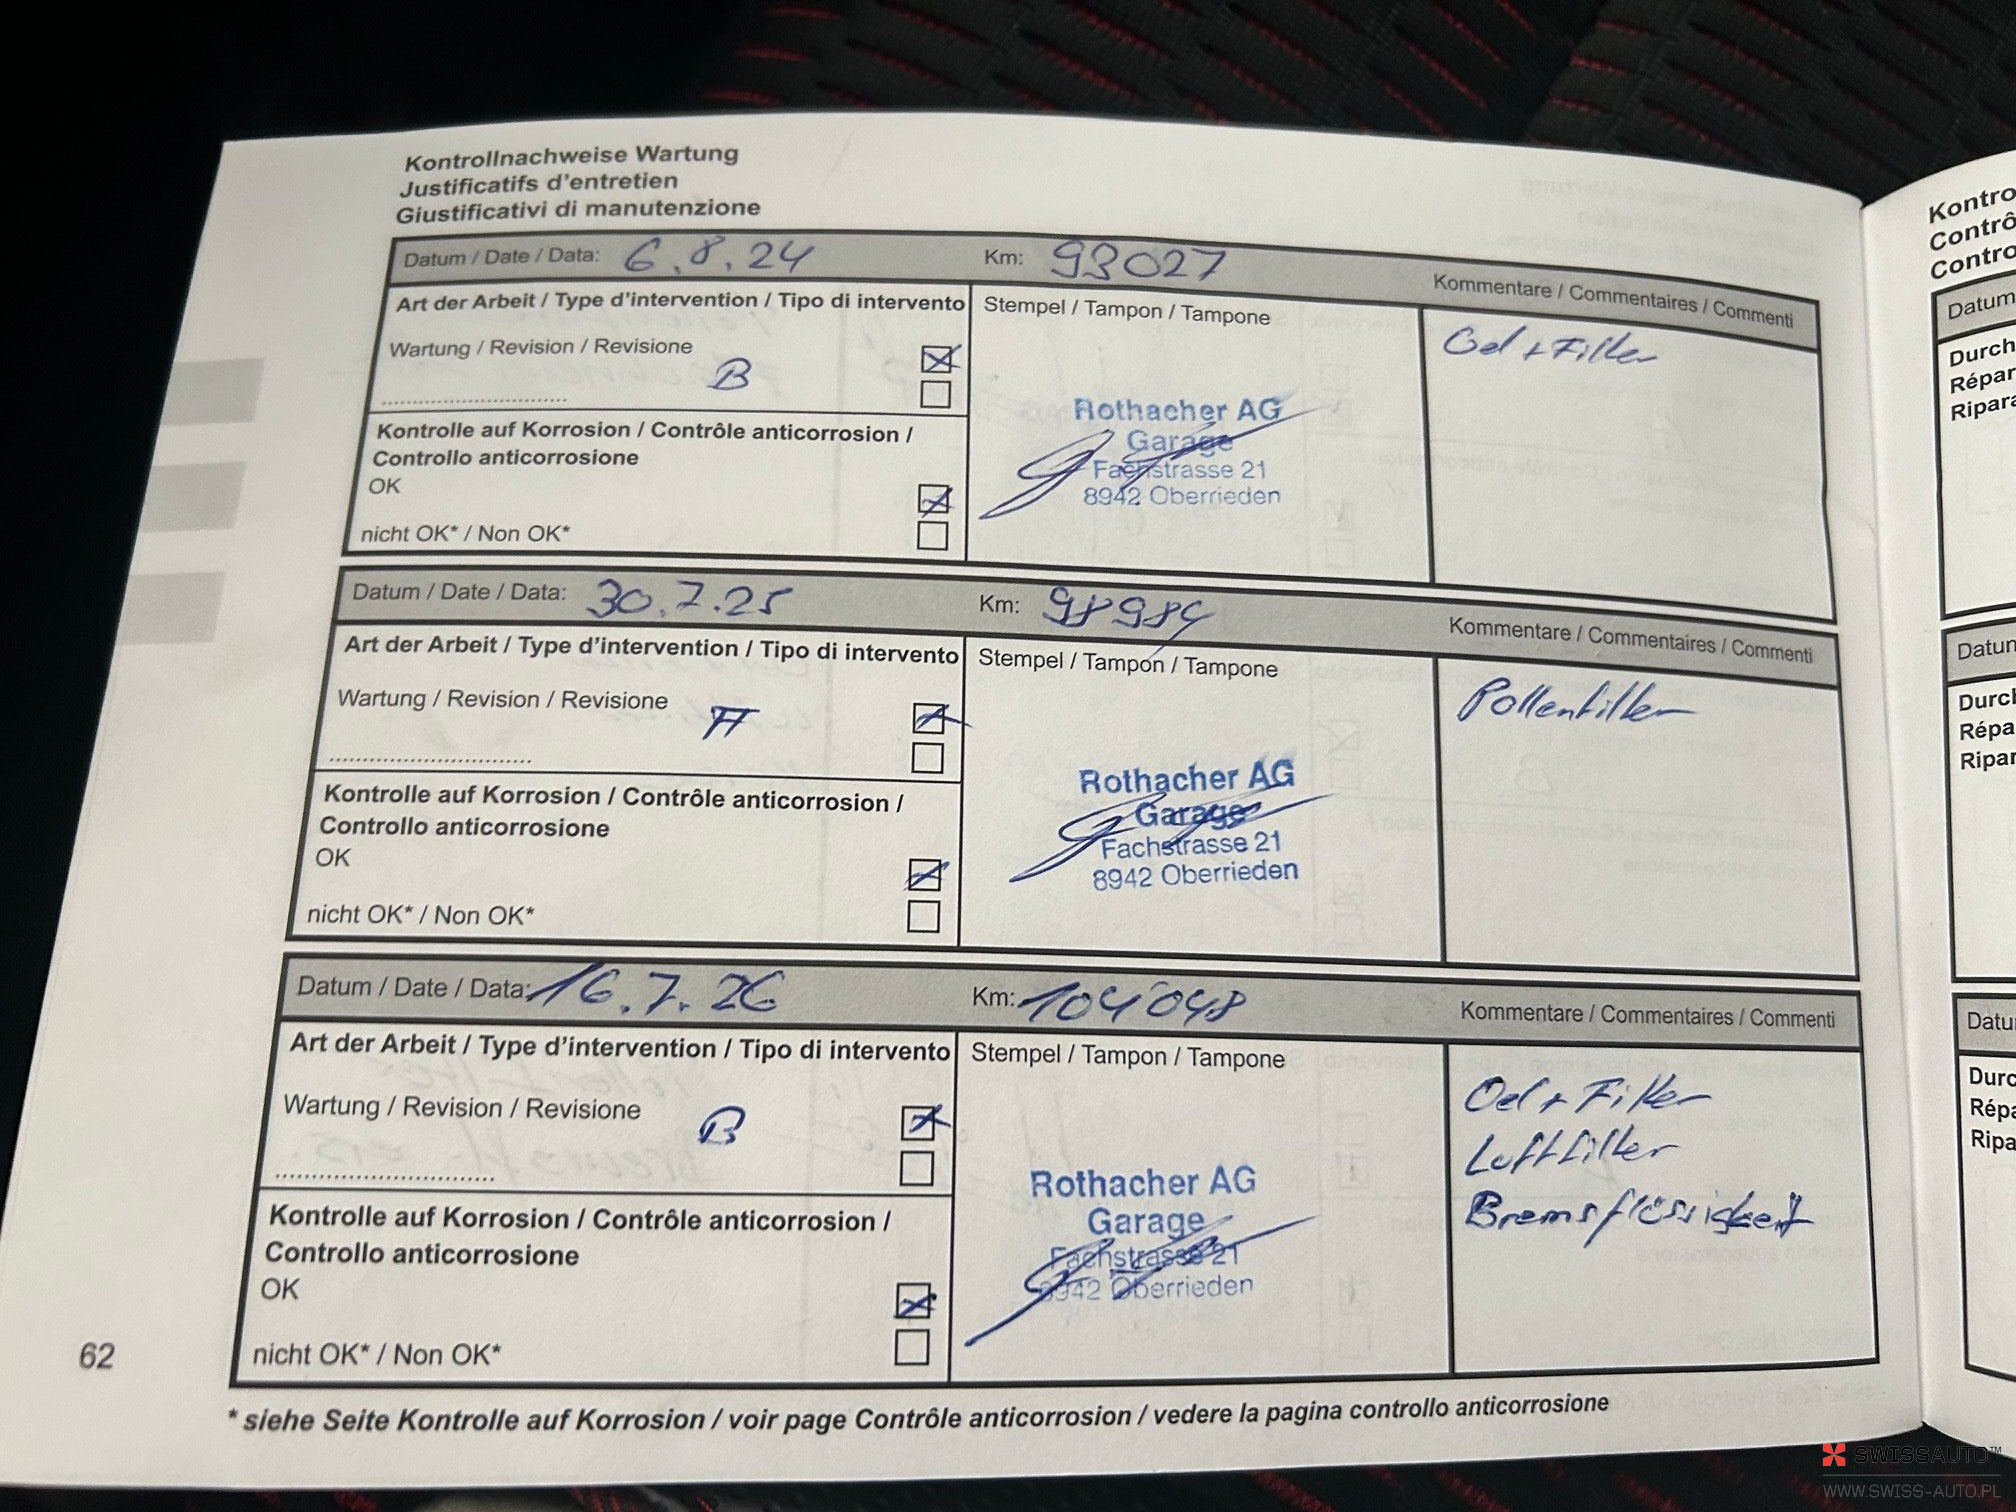 Kontrollnachweise Wartung
Justificatifs d'entretien
Giustificativi di manutenzione
Datum / Date / Data: 6.8.24 Km: 93027 Kommentare / Commentaires / Commenti
Art der Arbeit / Type d'intervention / Tipo di intervento
Stempel / Tampon / Tampone
Oel + Filter
Wartung / Revision / Revisione B
Kontrolle auf Korrosion / Contrôle anticorrosion /
Controllo anticorrosione
OK
nicht OK* / Non OK*
Rothacher AG
Garage
Fachstrasse 21
8942 Oberrieden
Datum / Date / Data: 30.7.25 Km: 98984 Kommentare / Commentaires / Commenti
Art der Arbeit / Type d'intervention / Tipo di intervento
Stempel / Tampon / Tampone
Pollenfilter
Wartung / Revision / Revisione A
Kontrolle auf Korrosion / Contrôle anticorrosion /
Controllo anticorrosione
OK
nicht OK* / Non OK*
Rothacher AG
Garage
Fachstrasse 21
8942 Oberrieden
Datum / Date / Data: 16.7.26 Km: 104'048 Kommentare / Commentaires / Commenti
Art der Arbeit / Type d'intervention / Tipo di intervento
Stempel / Tampon / Tampone
Oel + Filter
Luftfilter
Bremsflössigkeit
Wartung / Revision / Revisione B
Kontrolle auf Korrosion / Contrôle anticorrosion /
Controllo anticorrosione
OK
nicht OK* / Non OK*
Rothacher AG
Garage
Fachstrasse 21
8942 Oberrieden
62
* siehe Seite Kontrolle auf Korrosion / voir page Contrôle anticorrosion / vedere la pagina controllo anticorrosione
Kontro
Contrô
Contro
Datum
Durch
Répar
Ripara
Datun
Durcl
Répa
Ripar
Datu
Durc
Répa
Ripa
SWISSAUTO™
WWW.SWISS-AUTO.PL